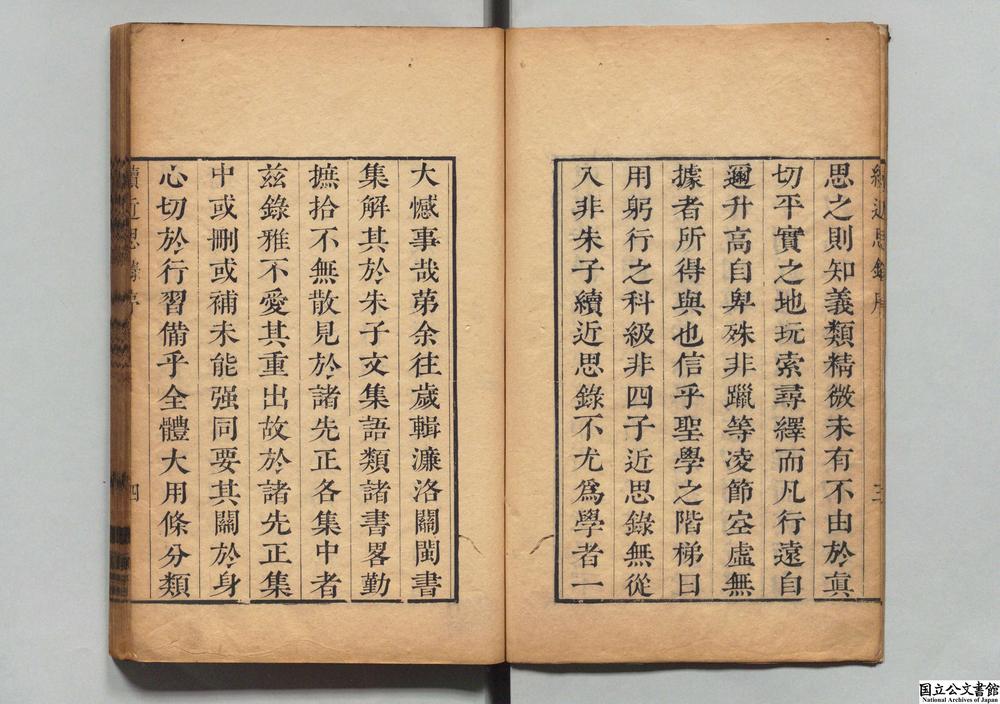 思之則知義類精微未有不由於真
切平實之地玩索尋繹而凡行遠自
邇升高自卑殊非躐等凌節空虛無
據者所得與也信乎聖學之階梯日
用躬行之科級非四子近思錄無從
入非朱子續近思錄不尤為學者一
大憾事哉苐余往歲輯濂洛關閩書
集解其於朱子文集語類諸書畧勤
摭拾不無散見於諸先正各集中者
茲錄雅不愛其重出故於諸先正集
中或刪或補未能强同要其關於身
心切於行習備乎全體大用條分類
四
国立公文書館
National Archives of Japan